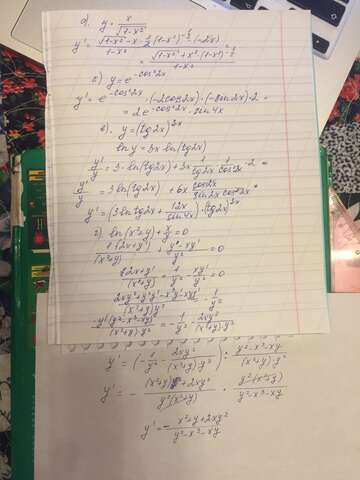 а) y = x/√(1-x²)
y' = (√(1-x²) - x · 1/2 (1-x²)^(-1/2) · (-2x))/(1-x²) =
= (√(1-x²) + x² (1-x²)^(-1/2))/(1-x²)
б) y = e^(-cos²2x)
y' = e^(-cos²2x) · (-2cos2x) · (-sin2x) · 2 =
= 2e^(-cos²2x) · sin4x
в) y = (tg2x)^(3x)
ln y = 3x ln(tg2x)
y'/y = 3 · ln(tg2x) + 3x 1/tg2x · 1/cos²2x · 2 =
y'/y = 3 ln(tg2x) + 6x cos2x/(sin2x cos²2x) =
y' = (3ln tg2x + 12x/sin4x) · (tg2x)^(3x)
г) ln(x²+y) + x/y = 0
1·(2x+y')/(x²+y) + (y - xy')/y² = 0
(2x+y')/(x²+y) + 1/y - xy'/y² = 0
y' = (-1/y² - 2xy²/((x²+y)·y²)) : (y²-x³-xy)/((x²+y)·y²)
y' = - ((x²+y) + 2xy²)/(y²(x²+y)) · (y²(x²+y))/(y²-x³-xy)
y' = - (x²+y+2xy²)/(y²-x³-xy)